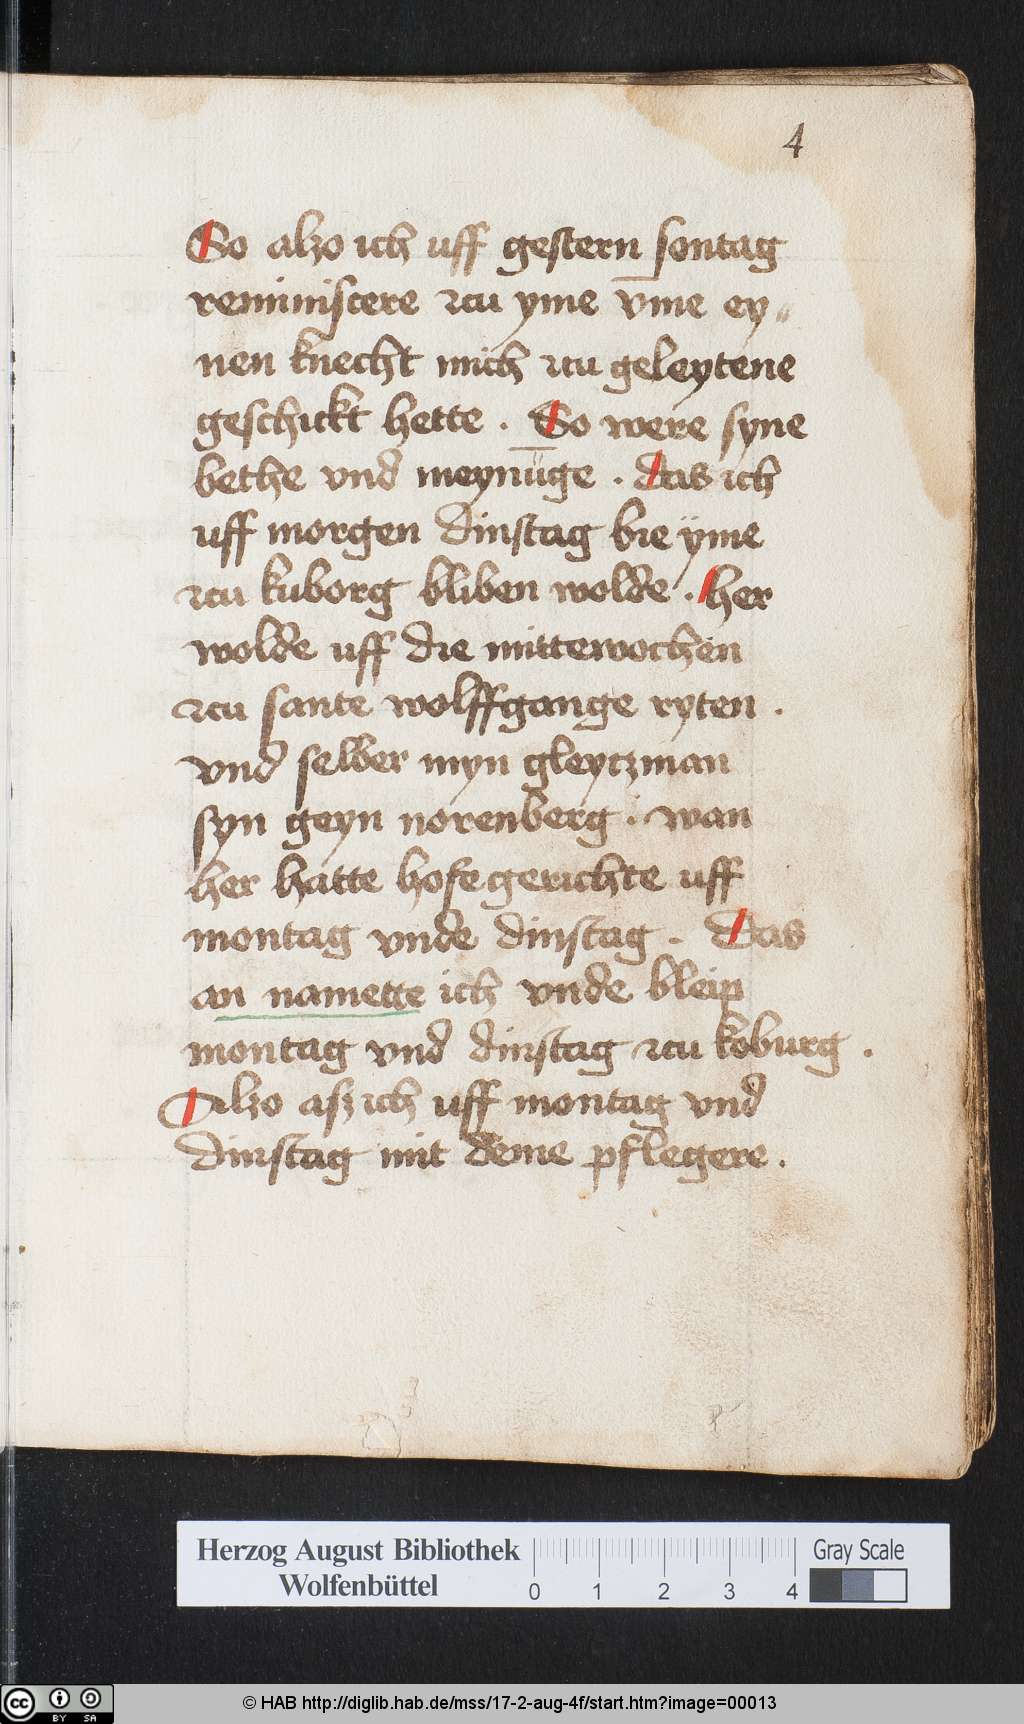 4
So alzo ich uff gestern sontag
reminiscere zcu yme vme ey-
nen knecht mich zcu geleytene
geschickt hette . So were syne
bethe vnd meynūge . das ich
uff morgen dinstag bie ÿme
zcu kuborg bliben wolde . her
wolde uff die mittewochen
zcu sante wolffgange ryten .
vnd selber myn gleytzman
syn geyn norenberg . wan
her hatte hofegerichte uff
montag vnde dinstag . Das
an namette ich vnde bleip
montag vnd dinstag zcu koburg .
Alzo asz ich uff montag vnd
dinstag mit deme pflegere .
Herzog August Bibliothek
Wolfenbüttel
0 1 2 3 4
Gray Scale
cc BY SA
© HAB http://diglib.hab.de/mss/17-2-aug-4f/start.htm?image=00013